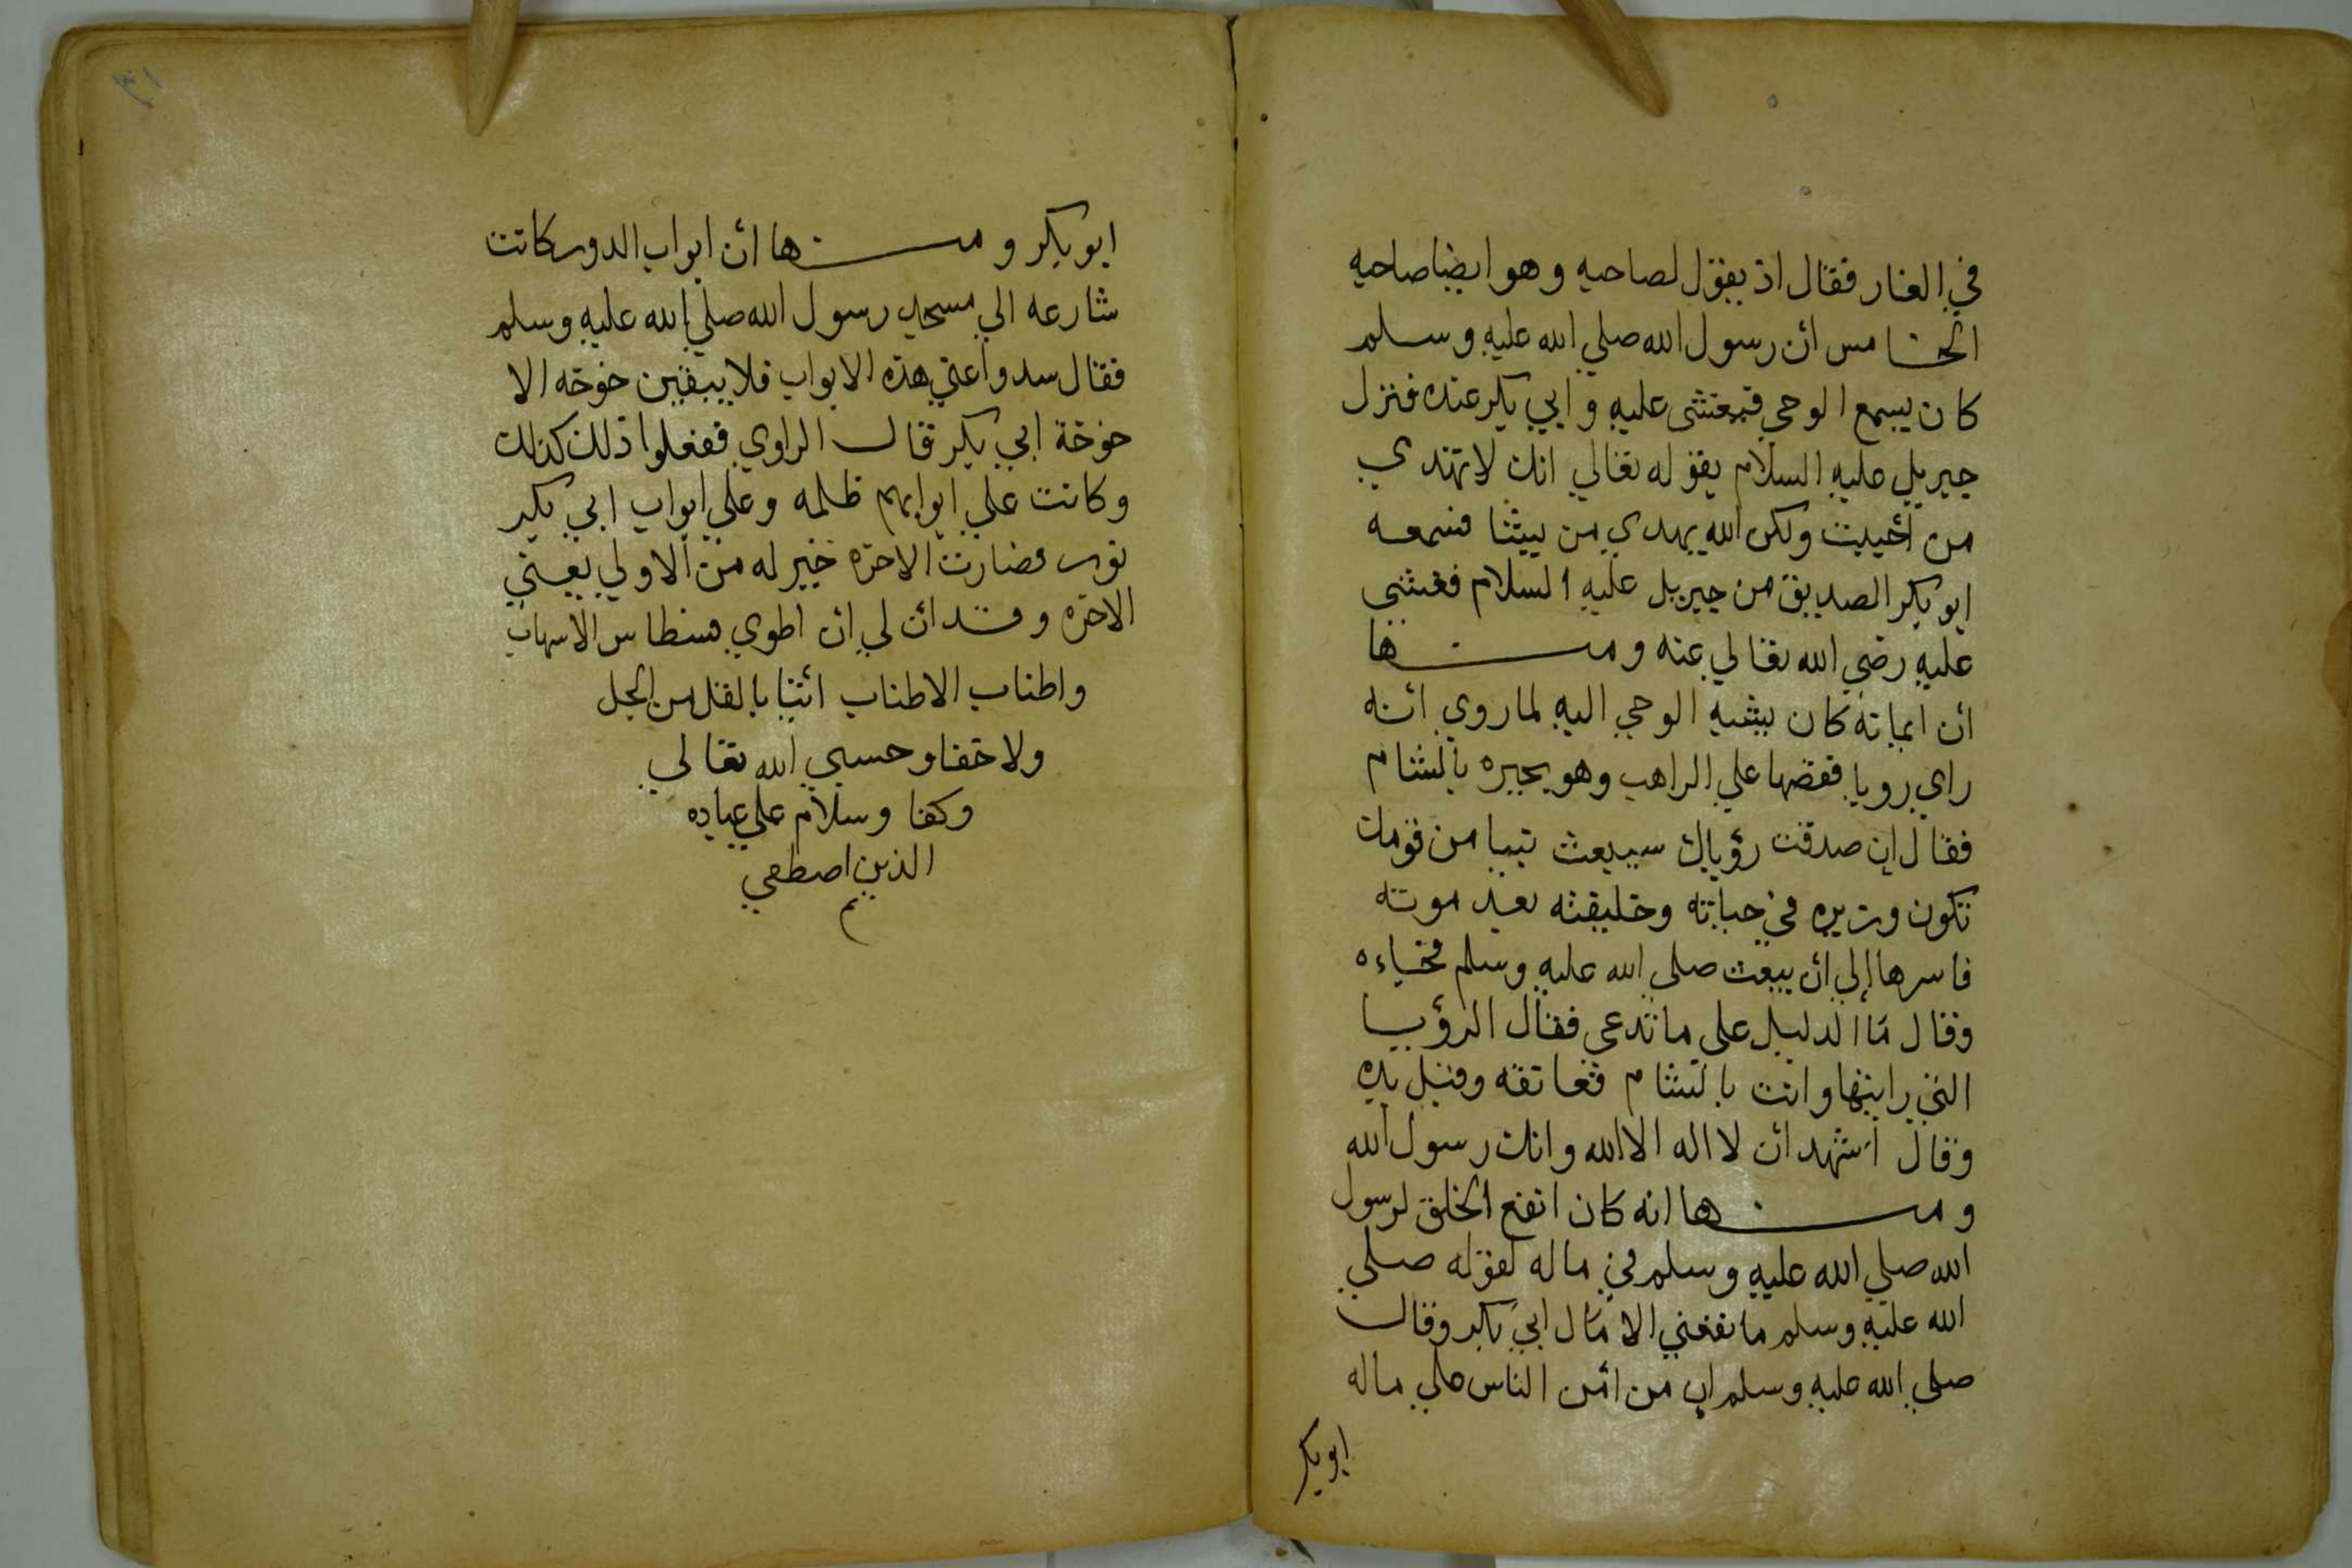 في الغار فقال اذ يقول لصاحبه وهو ايضا صاحبه
الخامس أن رسول الله صلي الله عليه وسلم
كان يسمع الوحي فيغشى عليه وابي بكر عنده فنزل
جبريل عليه السلام بقوله تعالي انك لا تهتدي
من أحببت ولكن الله يهدي من يشا فسمعه
ابو بكر الصديق من جبريل عليه السلام فغشي
عليه رضي الله تعالي عنه ومنها
أن ايمانه كان يشبه الوحي اليه لما روي أنه
راي رويا فقصها علي الراهب وهو بحيره بالشام
فقال إن صدقت رؤياك سيبعث نبيا من قومك
تكون وزيره في حياته وخليفته بعد موته
فاسرها إلي أن يبعث صلي الله عليه وسلم فجاءه
وقال ما الدليل على ما تدعي فقال الرؤيا
التي رايتها وانت بالشام فعانقه وقبل يده
وقال أشهد أن لا اله الا الله وانك رسول الله
ومنها انه كان انفع الخلق لرسول
الله صلي الله عليه وسلم في ماله لقوله صلي
الله عليه وسلم ما نفعني الا مال ابي بكر وقال
صلي الله عليه وسلم إن من أمن الناس علي ماله
ابو بكر
٣١
ابو بكر ومنها أن ابواب الدور كانت
شارعه الي مسجد رسول الله صلي الله عليه وسلم
فقال سدوا عني هذه الابواب فلا يبقين خوخه الا
خوخة ابي بكر قال الراوي ففعلوا ذلك كذلك
وكانت علي ابوابهم ظلمه وعلي ابواب ابي بكر
نور فصارت الاخره خير له من الاولي يعني
الاخره وقد ان لي ان اطوي فسطاس الاسهاب
واطناب الاطناب أتيا بالقل من الجل
ولا خفا وحسبي الله تعالي
وكفا وسلام علي عباده
الذين اصطفي
م